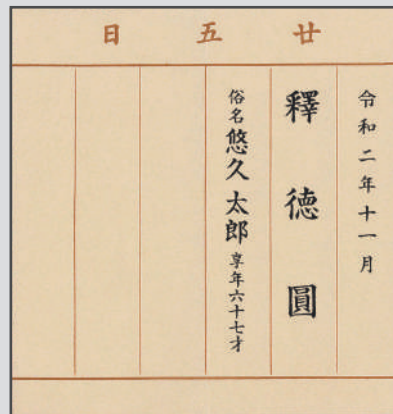 廿五日
令和二年十一月
釋徳圓
俗名 悠久太郎 享年六十七才